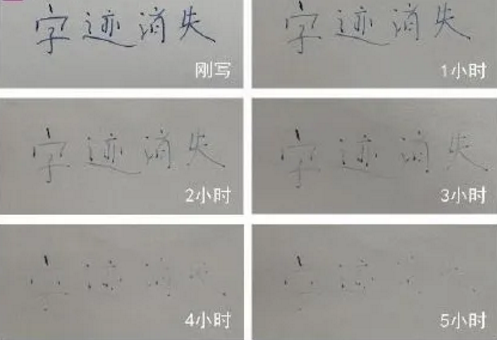 字迹消失
刚写
字迹消失
1小时
字迹消失
2小时
字迹消失
3小时
4小时
5小时